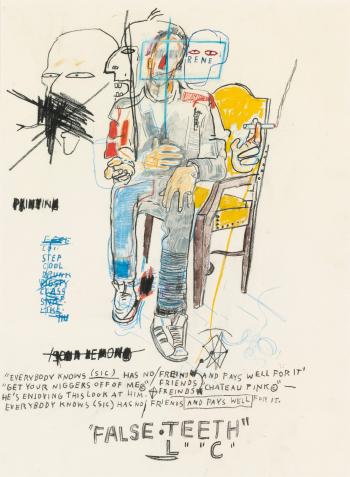 RENE
STEP
COOL
CLASS
LIKE
"EVERYBODY KNOWS (SIC) HAS NO/FREIN AND PAYS WELL FOR IT'
"GET YOUR NIGGERS OFF OF ME© FRIENDS CHATEAU PINK©"—
HE'S ENJOYING THIS LOOK AT HIM. FREINDS
EVERYBODY KNOWS (SIC) HAS NO/FRIENDS AND PAYS WELL FOR IT.
"FALSE•TEETH"
L""C"